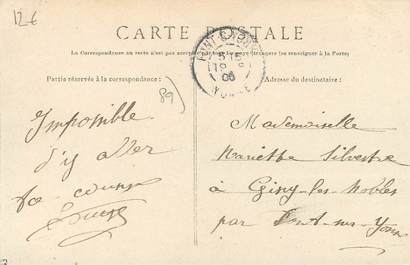 12€
CARTE POSTALE
La Correspondance au recto n'est pas acceptée par tous les pays étrangers (se renseigner à la Poste)
Partie réservée à la correspondance:
Adresse du destinataire:
89
Impossible
d'y aller
ta cousine
Mademoiselle
Mariette Silvestre
à Gisy-les-Nobles
par Pont-sur-Yonne